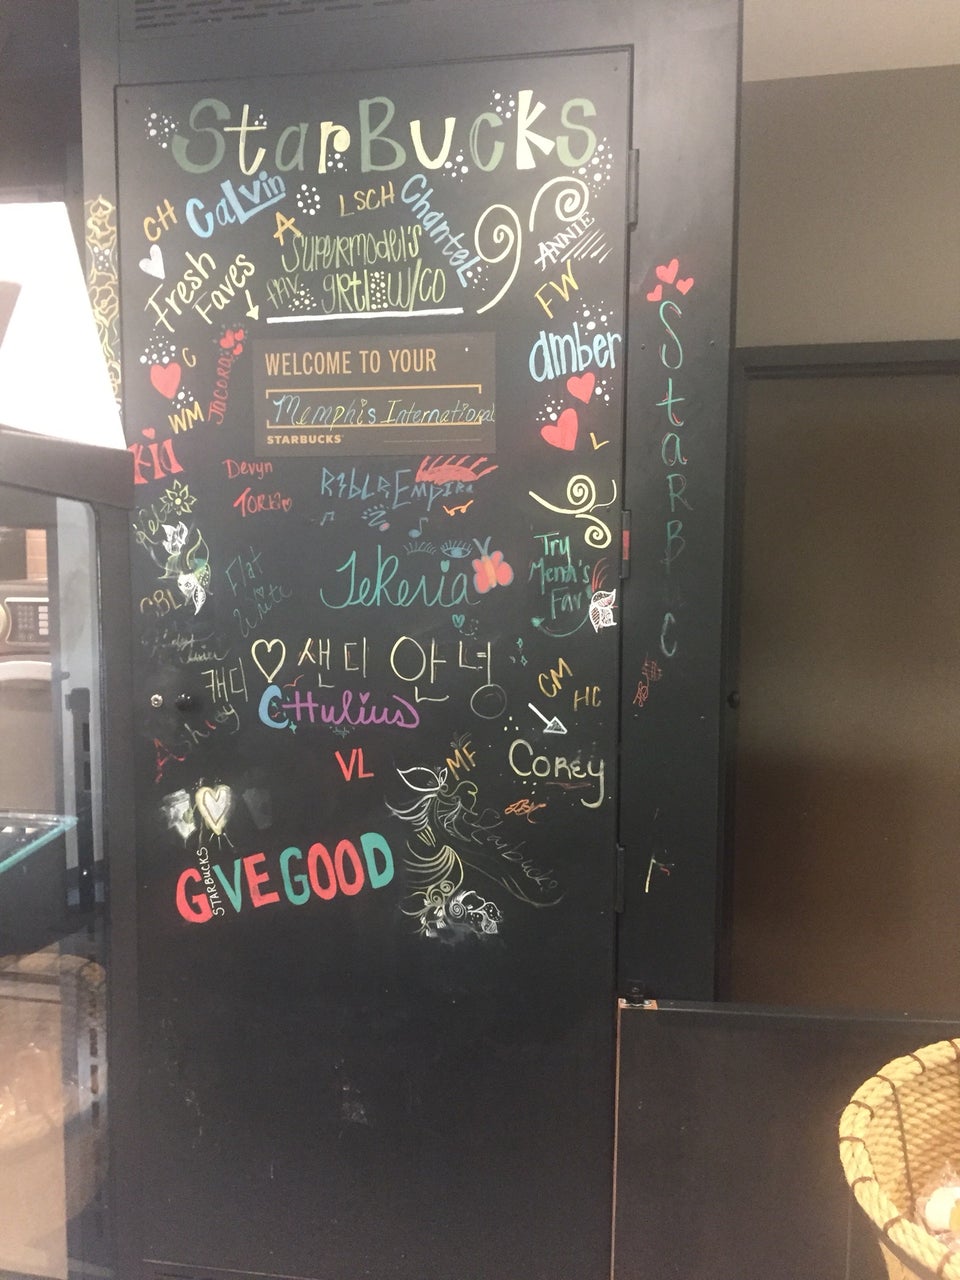 StarBucks
CH
CaLvin
A
LSCH
ChanteL
ANNIE
Fresh
Faves
SUPERMODEL'S
FAV.
grtl W/CO
FW
amber
C
JACORA
WELCOME TO YOUR
Memphis International
STARBUCKS
WM
L
kia
Devyn
TORRi
EmpIRE
StaRBUC
Flat
White
JeKeria
Try
Mena's
Fav
CBL
샌디 안녕
캐디
CHulius
Ashley
CM
HC
VL
MF
COREY
LBK
Starbucks
GIVE GOOD
STARBUCKS